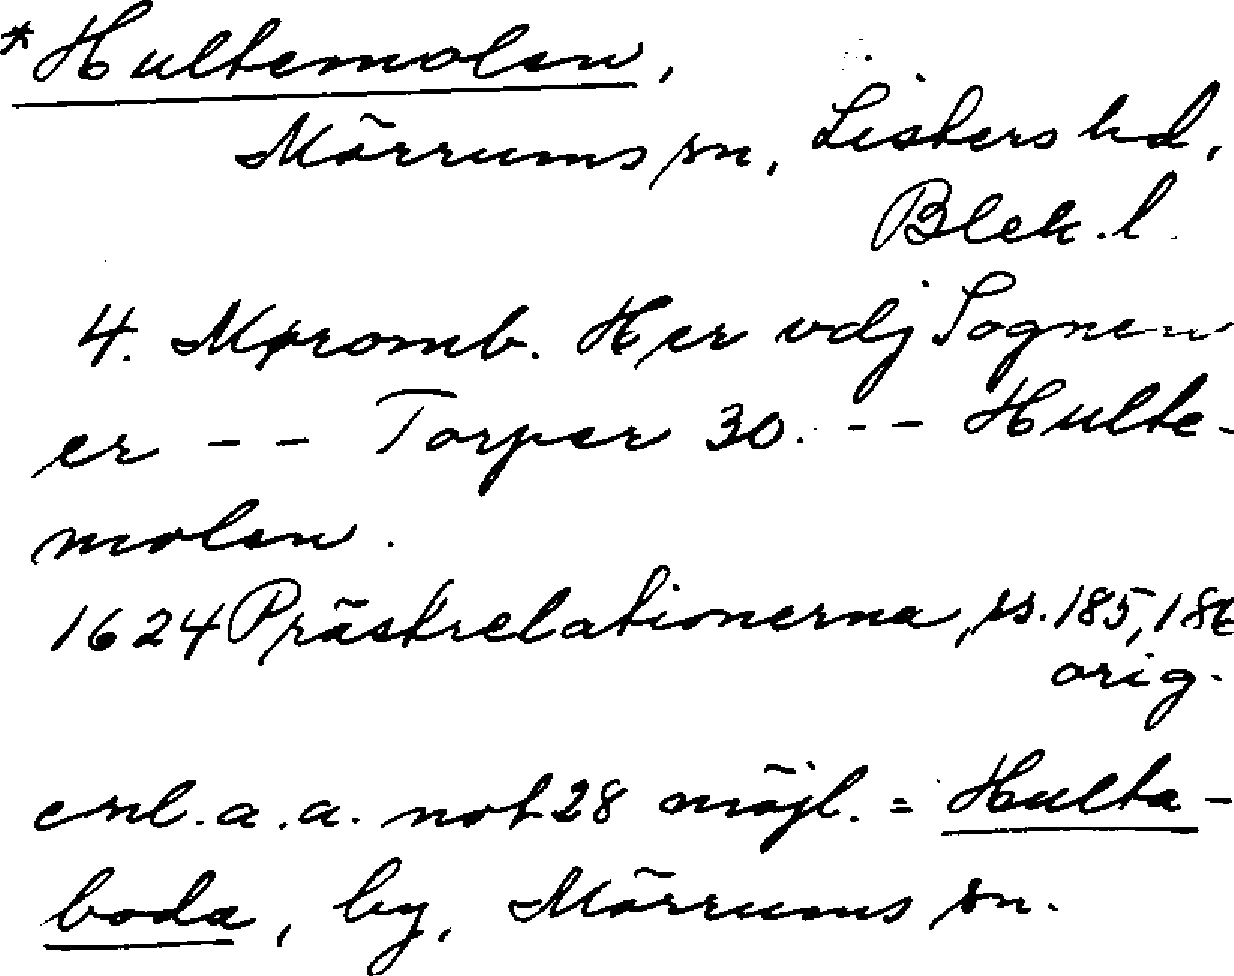 *Hultemolen,
Mörrums sn, Listers hd,
Blek. l.
4. Møromb. Her vdj Sognen
er - - Torper 30. - - Hulte-
molen.
1624 Prästrelationerna, ss. 185, 186
orig.
enl. a. a. not 28 möjl. = Hulta-
boda, by, Mörrums sn.